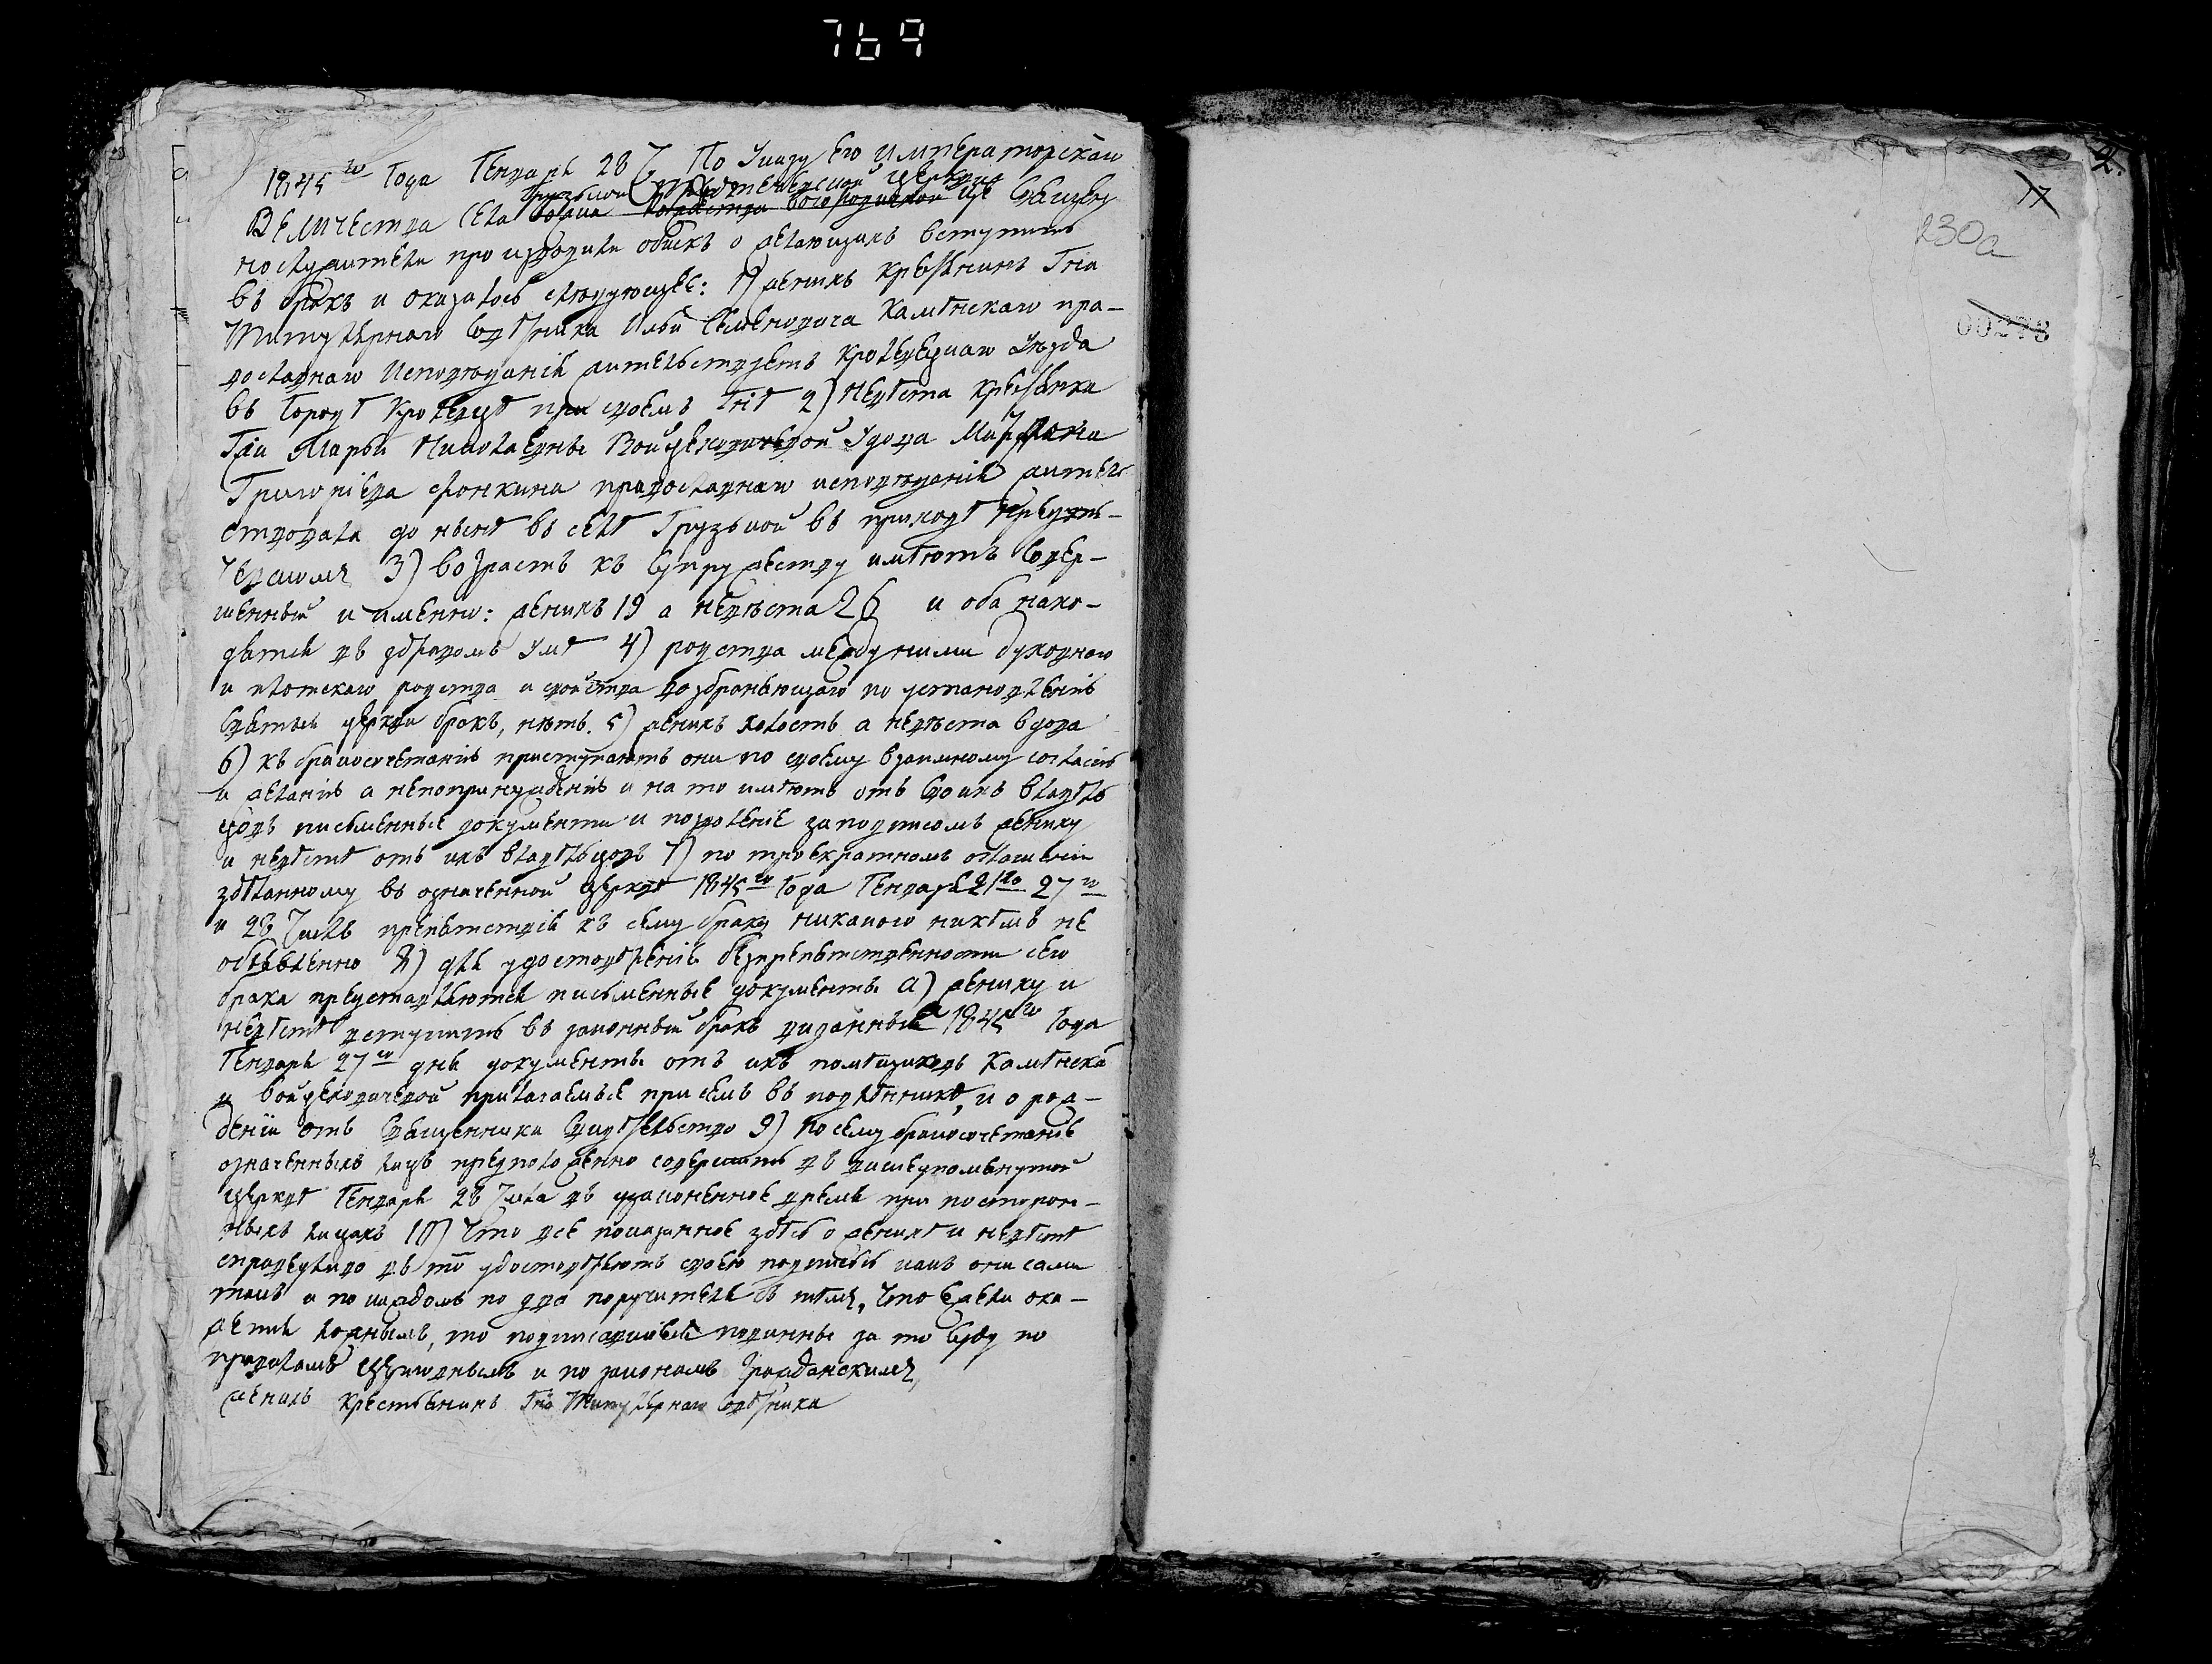 769
1845го Года Генваря 28 ч. По Указу Его Императорскаго
Величества Села Грузской Предтечевской Церкви Священно
служители производили обыскъ о желающихъ вступить
въ бракъ и оказалось слюдующее: 1) женихъ крестянинъ Гна
Титулярнаго Советника Ильи Семеновича Каменскаго пра-
вославнаго Исповюданія жительствуетъ Кролевецкаго Уѣзда
въ Городѣ Кролевцѣ при своемъ Гнѣ 2) Невѣста крестянка
Гжи Марьи Николаевны Войцеховичевой Удова
Григоріева православнаго исповюданія житель
ствовала до нынѣ въ селѣ Грузской въ приходѣ Предте-
чевскомъ 3) Возрастъ къ супружеству имѣютъ совер-
шенный и именно: женихъ 19 а невѣста 26 и оба нахо-
дятся въ здравомъ Умѣ 4) родства между ними духовнаго
и плотскаго родства и свойства возбраняющаго по установленію
Святыя церкви бракъ, нѣтъ. 5) женихъ холостъ а невѣста вдова
6) къ бракосочетанію приступаютъ они по своему взаимному согласію
и желанію а непопринужденію и на то имѣютъ отъ своихъ владѣль
цовъ письменные документи и позволеніе заподписомъ жениху
и невѣстѣ отъ ихъ владѣльцовъ 7) по троекратномъ оглашеніи
здѣланному въ означенной церквѣ 1845го Года Генваря 21го 27го
и 28 Числъ препятствія къ сему браку никакого никѣмъ не
объявленно 8) для удостовѣренія безпрепятственности сего
брака представляются письменные документы а) жениху и
невѣстѣ вступить въ законный бракъ виданные 1845го Года
Генваря 27го дня документы отъ ихъ помѣщиковъ Каменска
и Войцеховичевой прилагаемые при семъ въ подлѣннике, и о рож-
деніи отъ Священника Свидѣтельство 9) По сему бракосочетаніе
означенныхъ лицъ предположенно совершить въ вишеупомянутой
Церквѣ Генваря 28 Числа въ узаконенное время при посторон-
ныхъ лицахъ 10) Что все показанное здѣсь о женихѣ и невѣстѣ
справедливо въ томъ удостовѣряютъ своею подписью какъ они сами
такъ и по каждомъ по два поручителя съ тѣмъ, что ежели ока-
жется ложнымъ, то подписавшіеся повинны за то суду по
правиламъ Церковнымъ и по законамъ Гражданскимъ,
женихъ Крестьянинъ Гна Титулярнаго Советника
2.
17
230а
00278